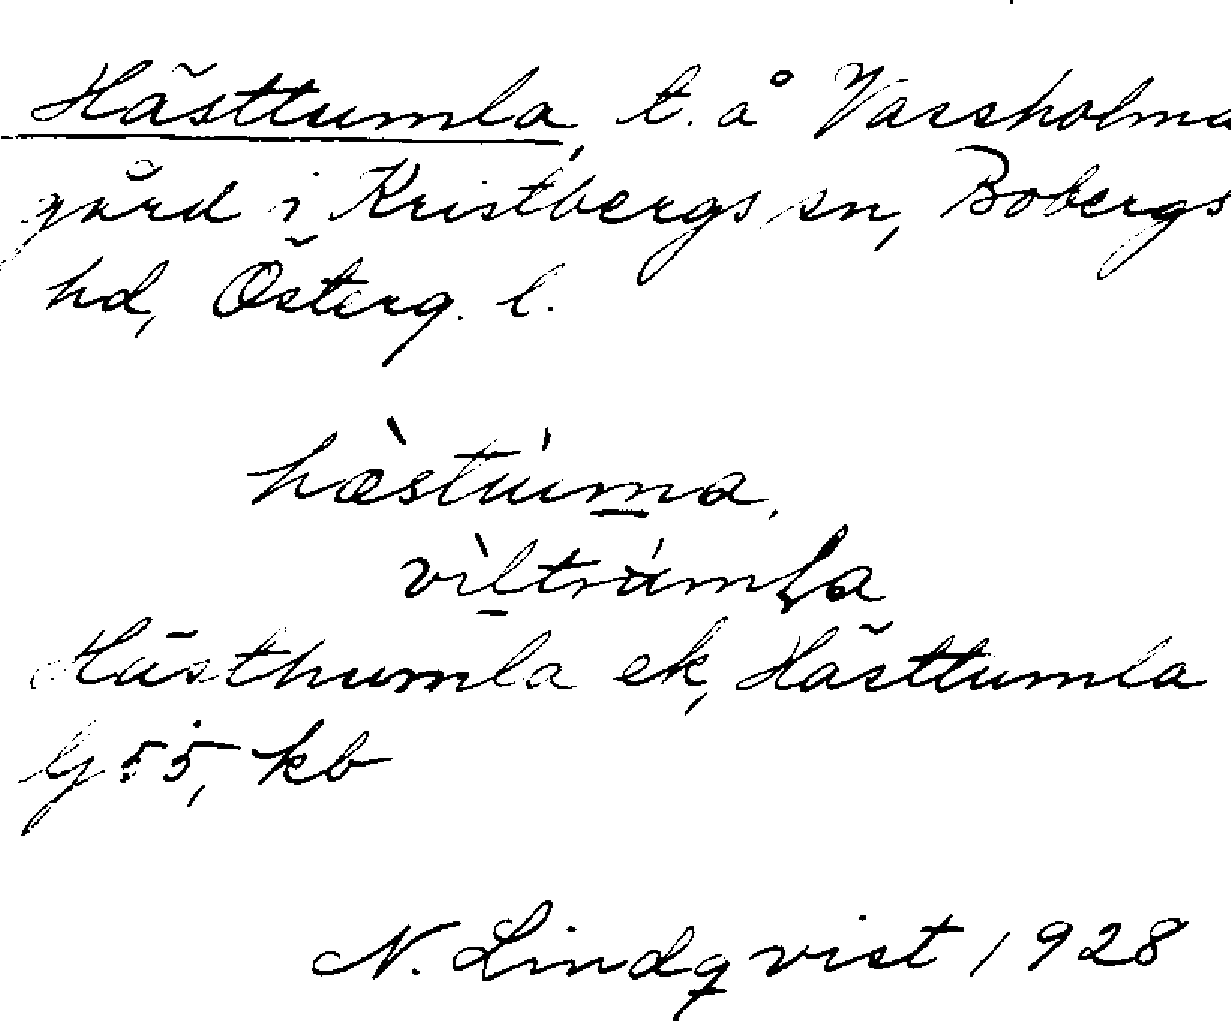 Hästtumla, t. å Vassholma
gård i Kristbergs sn, Bobergs
hd, Österg. l.
hæ̀stúma,
vìltrúmla
Hästhumla ek, Hästtumla
Gj 55, kb
N. Lindqvist 1928